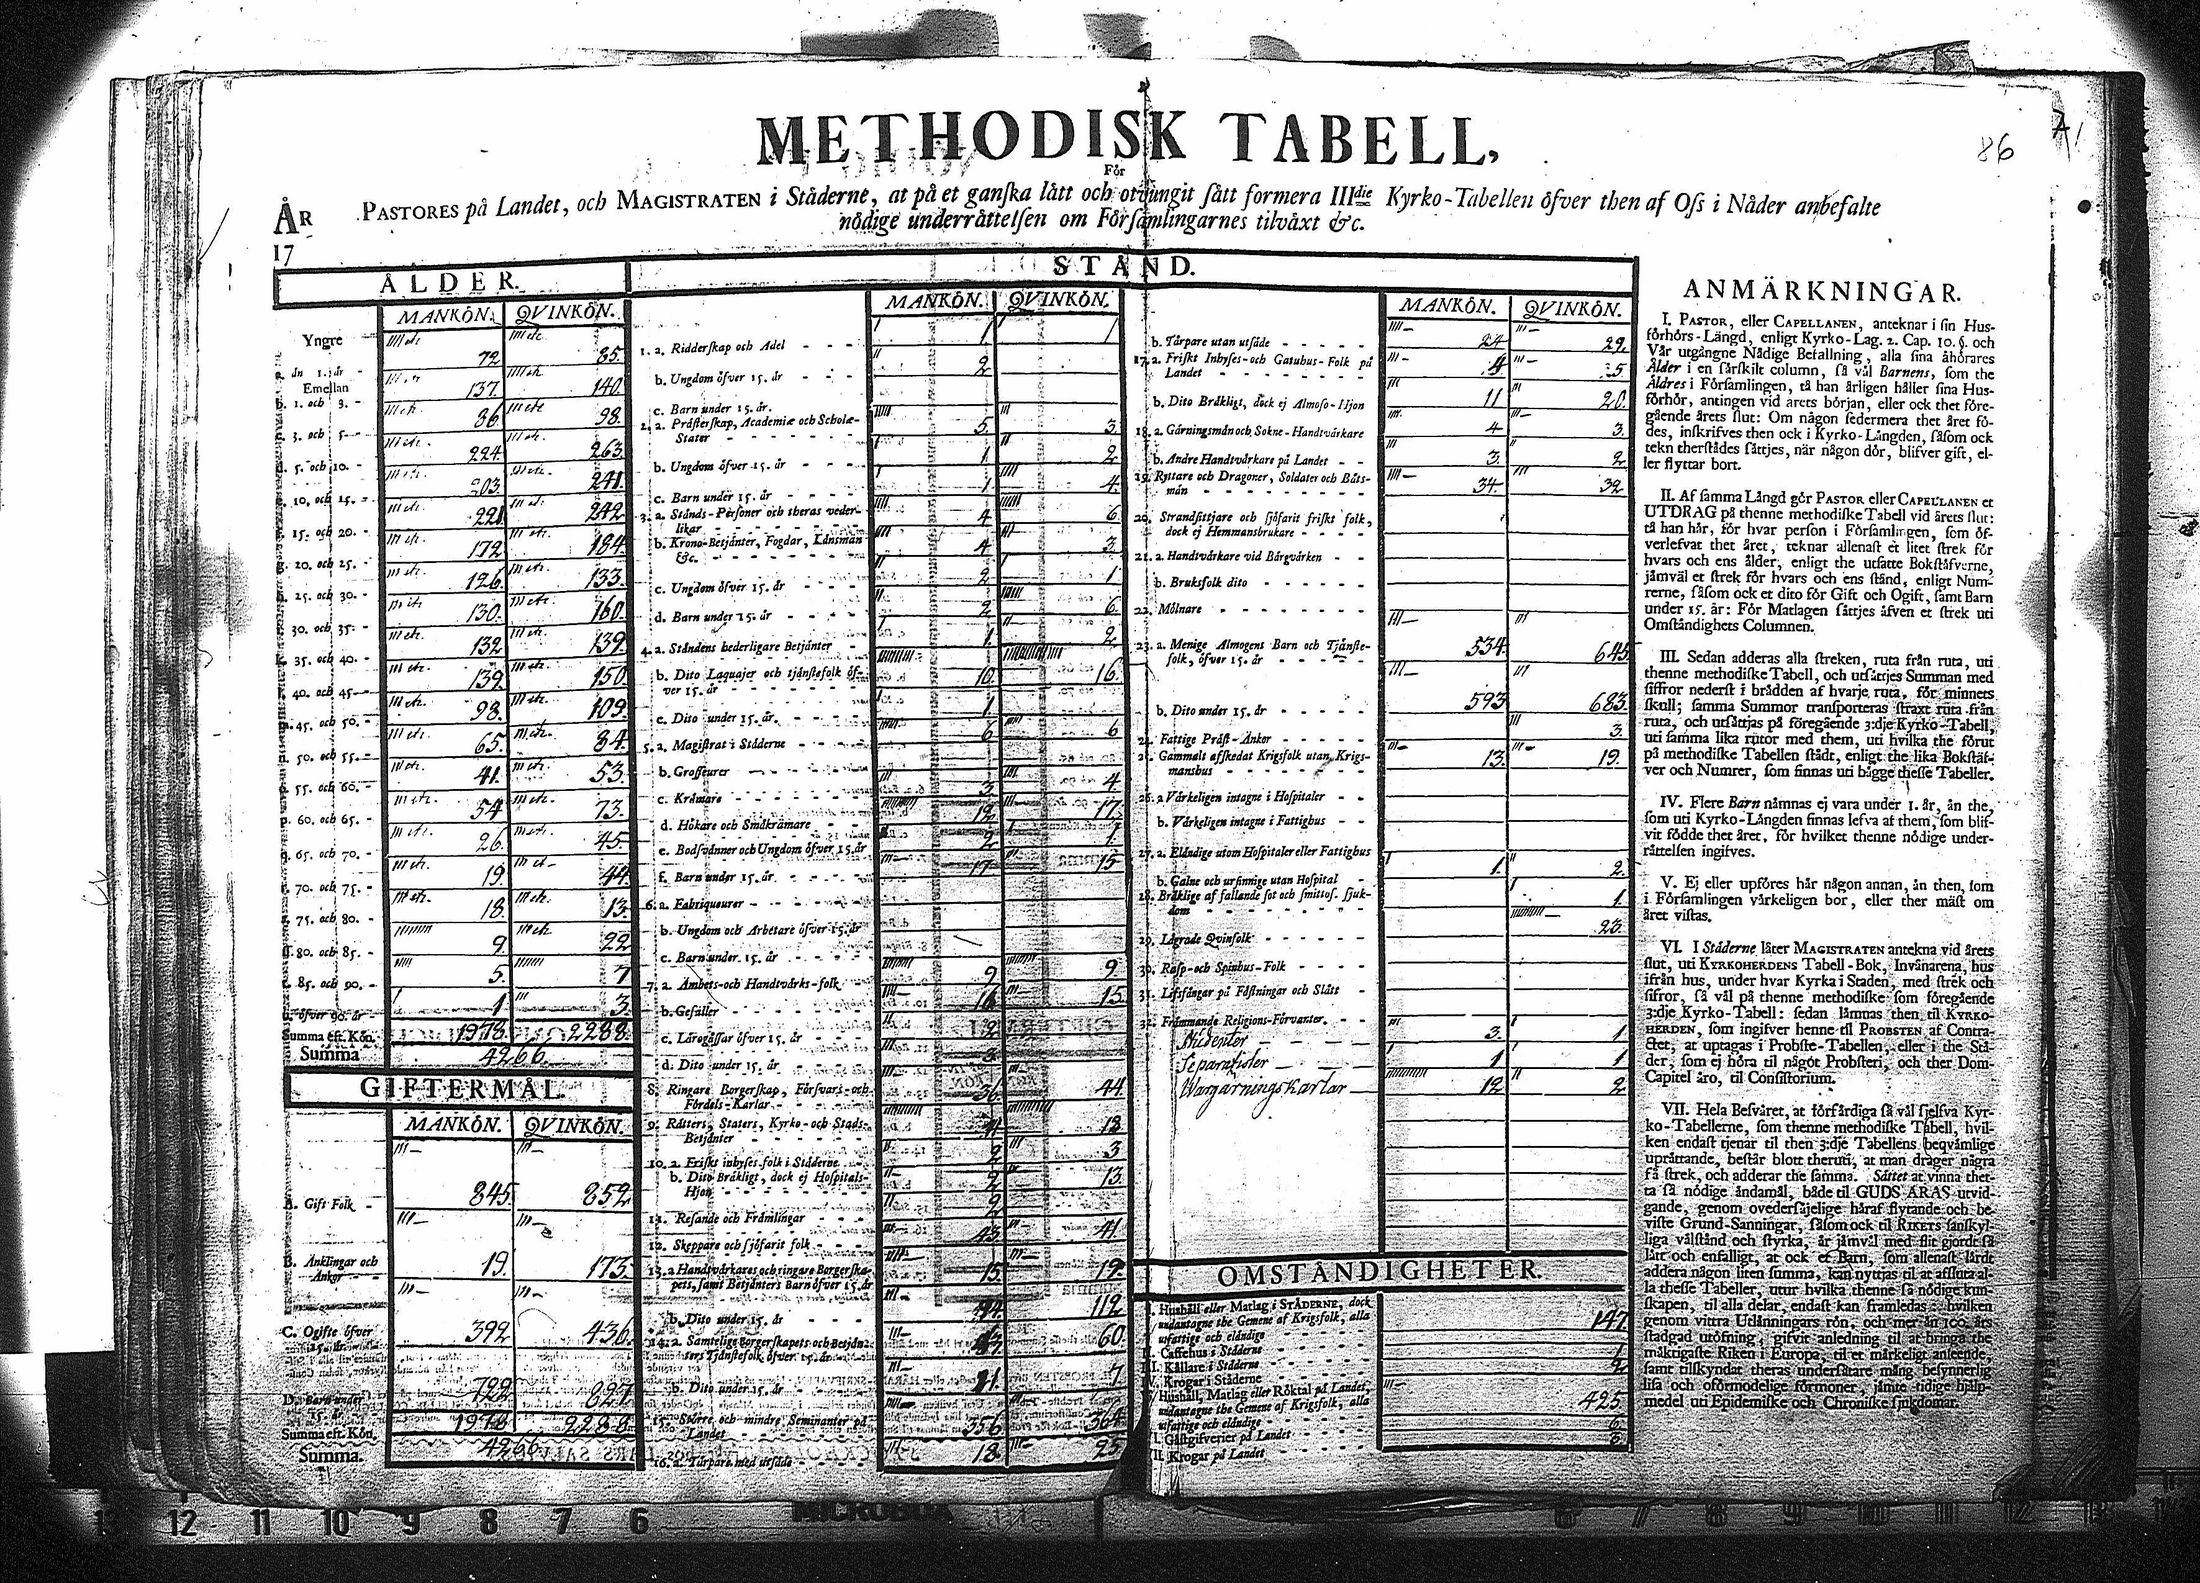 METHODISK TABELL,
För
PASTORES på Landet, och MAGISTRATEN i Städerne, at på et ganska lätt och otvungit sätt formera IIIdie Kyrko-Tabellen öfver then af Oss i Nåder anbefalte
nödige underrättelsen om Församlingarnes tilväxt &c.
86
ÅR
17
ÅLDER.
MANKÖN. QVINKÖN.
Yngre
än 1. år 72. 85.
Emellan
b. 1. och 3. 137. 140.
c. 3. och 5. 86. 98.
d. 5. och 10. 224. 263.
e. 10. och 15. 203. 241.
f. 15. och 20. 221. 242.
g. 20. och 25. 172. 184.
h. 25. och 30. 126. 133.
30. och 35. 130. 160.
k. 35. och 40. 132. 139.
l. 40. och 45. 139. 150.
m. 45. och 50. 98. 109.
n. 50. och 55. 65. 84.
55. och 60. 41. 53.
p. 60. och 65. 54. 73.
q. 65. och 70. 26. 45.
r. 70. och 75. 19. 44.
s. 75. och 80. 18. 13.
80. och 85. 9. 22
t. 85. och 90. 5. 7
u. öfver 90. år 1 3
Summa eft. Kön. 1978. 2288.
Summa 4266.
GIFTERMÅL.
MANKÖN. QVINKÖN.
A. Gift Folk 845. 852
B. Änklingar och
Änkor 19. 173.
C. Ogifte öfver
15. år 392 436
D. Barn under
15. år 722 827
Summa eft. Kön. 1978 2288
Summa. 4266
STÅND.
MANKÖN. QVINKÖN.
1. a. Ridderskap och Adel 1 1
b. Ungdom öfver 15. år 2
c. Barn under 15. år.
2. a. Prästerskap, Academiæ och Scholæ-
Stater 5. 3.
b. Ungdom öfver 15. år 1. 2
c. Barn under 15. år 1 4.
3. a. Stånds-Personer och theras veder-
likar 4 6
b. Krono-Betjänter, Fogdar, Länsmän
&c. 4. 3.
c. Ungdom öfver 15. år 2 1
d. Barn under 15. år 2 6.
4. a. Ståndens hederligare Betjänter 1. 2
b. Dito Laquajer och tjänstefolk öf-
ver 15. år 10. 16.
c. Dito under 15. år. 1.
5. a. Magistrat i Städerne 6 6
b. Grosseurer
c. Krämare 3 4.
d. Hökare och Småkrämare 12 17.
e. Bodsvänner och Ungdom öfver 15. år 2 1
f. Barn under 15. år. 17 15
6. a. Fabriqueurer
b. Ungdom och Arbetare öfver 15. år
c. Barn under 15. år
7. a. Ämbets-och Handtvärks-folk 9 9
b. Gesäller 16 15
c. Lärogåssar öfver 15. år 2
d. Dito under 15. år 3
8. Ringare Borgerskap, Försvars-och
Fördels-Karlar 36 44
9. Rätters, Staters, Kyrko-och Stads-
Betjänter 18
10. a. Friskt inhyses folk i Städerne 2 3
b. Dito Bräkligt, dock ej Hospitals-
Hjon 2 13.
11. Resande och Främlingar 2
12. Skeppare och sjöfarit folk 43 41
13. a Handtvärkares och ringare Borgerska-
pets, samt Betjänters Barn öfver 15. år 15 19.
b. Dito under 15. år 112
14. a. Samtelige Borgerskapets och Betjän-
ters Tjänstefolk, öfver 15. år 60.
b. Dito under 15. år 7
15. Större och mindre Hemmanter på
Landet 356 364
16. a. Torpare med utsäde 18. 25
MANKÖN. QVINKÖN.
b. Torpare utan utsäde 24 29.
17. a. Friskt Inhyses-och Gatuhus-Folk på
Landet 4 5
b. Dito Bräkligt, dock ej Almoso-Hjon 11 20.
18. a. Gärningsmän och Sokne-Handtvärkare 4 3.
b. Andre Handtvärkare på Landet 3. 2
19. Ryttare och Dragoner, Soldater och Båts-
män 34. 32
20. Strandsittjare och sjöfarit friskt folk,
dock ej Hemmansbrukare
21. a. Handtvärkare vid Bärgvärken
b. Bruksfolk dito
22. Mölnare
23. a. Menige Almogens Barn och Tjänste-
folk, öfver 15. år 534. 645
b. Dito under 15. år 593 683.
24. Fattige Präst-Änkor 3.
25. Gammalt affskedat Krigsfolk utan Krigs-
manshus 13. 19.
26. a Värkeligen intagne i Hospitaler
b. Värkeligen intagne i Fattighus
27. a. Eländige utom Hospitaler eller Fattighus 1. 2.
b. Galne och ursinnige utan Hospital 1.
28. Bräklige af fallande sot och smittos. sjuk-
dom 23.
29. Lägrade Qvinfolk
30. Rasp-och Spinhus-Folk
31. Lifsfångar på Fästningar och Slått
32. Främmande Religions-Förvanter. 3. 1
Studenter
Separatister 1 1
Wargärningskarlar 12 2
OMSTÄNDIGHETER.
I. Hushåll eller Matlag i STÄDERNE, dock
undantagne the Gemene af Krigsfolk, alla
utfattige och eländige 147.
II. Caffehus i Städerne 1
III. Källare i Städerne 2
IV. Krogar i Städerne
V. Hushåll, Matlag eller Röktal på Landet,
undantagne the Gemene af Krigsfolk, alla
utfattige och eländige 425
VI. Gästgifverier på Landet 6.
VII. Krogar på Landet 3.
ANMÄRKNINGAR.
I. PASTOR, eller CAPELLANEN, anteknar i sin Hus-
förhörs-Längd, enligt Kyrko-Lag. 2. Cap. 10. §. och
Vår utgångne Nådige Befallning, alla sina åhörares
Ålder i en särskilt column, så väl Barnens, som the
Äldres i Församlingen, tå han årligen håller sina Hus-
förhör, antingen vid årets början, eller ock thet före-
gående årets slut: Om någon sedermera thet året fö-
des, inskrifves then ock i Kyrko-Längden, såsom ock
tekn therstädes sättjes, när någon dör, blifver gift, el-
ler flyttar bort.
II. Af samma Längd gör PASTOR eller CAPELLANEN et
UTDRAG på thenne methodiske Tabell vid årets slut:
tå han här, för hvar person i Församlingen, som öf-
verlefvat thet året, teknar allenast et litet strek för
hvars och ens ålder, enligt the utsatte Bokstäfverne,
jämväl et strek för hvars och ens stånd, enligt Num-
rerne, såsom ock et dito för Gift och Ogift, samt Barn
under 15. år: För Matlagen sättjes äfven et strek uti
Omständighets Columnen.
III. Sedan adderas alla streken, ruta från ruta, uti
thenne methodiske Tabell, och utsättjes Summan med
siffror nederst i brädden af hvarje ruta, för minnets
skull; samma Summor transporteras straxt ruta från
ruta, och utsättjas på föregående 3:dje Kyrko-Tabell,
uti samma lika rutor med them, uti hvilka the förut
på methodiske Tabellen stådt, enligt the lika Bokstäf-
ver och Numrer, som finnas uti bägge thesse Tabeller.
IV. Flere Barn nämnas ej vara under 1. år, än the,
som uti Kyrko-Längden finnas lefva af them, som blif-
vit födde thet året, för hvilket thenne nödige under-
rättelsen ingifves.
V. Ej eller upföres här någon annan, än then, som
i Församlingen värkeligen bor, eller ther mäst om
året vistas.
VI. I Städerne låter MAGISTRATEN antekna vid årets
slut, uti KYRKOHERDENS Tabell-Bok, Invånarena, hus
ifrån hus, under hvar Kyrka i Staden, med strek och
sifror, så väl på thenne methodiske som föregående
3:dje Kyrko-Tabell: sedan lämnas then til KYRKO-
HERDEN, som ingifver henne til PROBSTEN af Contra-
ctet, at uptagas i Probste-Tabellen, eller i the Stä-
der, som ej höra til något Probsteri, och ther Dom-
Capitel äro, til Consistorium.
VII. Hela Besväret, at förfärdiga så väl sjelfva Kyr-
ko-Tabellerne, som thenne methodiske Tabell, hvil-
ken endast tjenar til then 3:dje Tabellens beqvämlige
uprättande, består blott theruti, at man drager några
få strek, och adderar the samma. Sättet at vinna thet-
ta så nödige ändamål, både til GUDS ÄRAS utvid-
gande, genom ovedersäjelige häraf flytande och be-
viste Grund-Sanningar, såsom ock til RIKETS sanskyl-
liga välstånd och styrka, är jämväl med flit gjordt så
lätt och enfalligt, at ock et Barn, som allenast lärdt
addera någon liten summa, kan nyttjas til at afsluta al-
la thesse Tabeller, utur hvilka thenne så nödige kun-
skapen, til alla delar, endast kan framledas: hvilken
genom vittra Utlänningars rön, och mer än 100. års
stadgad utöfning, gifvit anledning til at bringa the
mäktigaste Riken i Europa, til et märkeligt anseende,
samt tilskyndat theras undersåtare mång besynnerlig
lisa och oförmodelige förmoner, jämte tidige hjälp-
medel uti Epidemiske och Chroniske sjukdomar.
12 11 10 9 8 7 6
MICROBOX
6 7 8 9 10 11 12 13